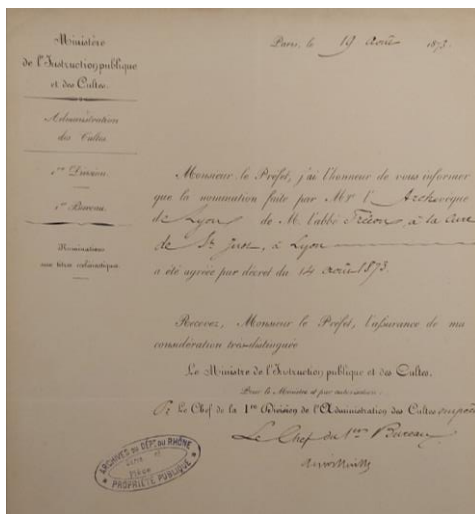 Ministère
de l'Instruction publique
et des Cultes.
Administration
des Cultes.
1ère Division.
1er Bureau.
Nominations
aux titres ecclésiastiques
Paris, le 19 août 1873.
Monsieur le Préfet, j'ai l'honneur de vous informer
que la nomination faite par Mgr l'Archevêque
de Lyon de M. l'abbé à la Cure
de St Just, à Lyon
a été agréée par décret du 14 août 1873.
Recevez, Monsieur le Préfet, l'assurance de ma
considération très-distinguée
Le Ministre de l'Instruction publique et des Cultes.
Pour le Ministre et par autorisation.
Pr Le Chef de la 1re Division de l'Administration des Cultes empêché
Le Chef du 1er Bureau
ARCHIVES DU DÉPT DU RHÔNE
PROPRIÉTÉ PUBLIQUE